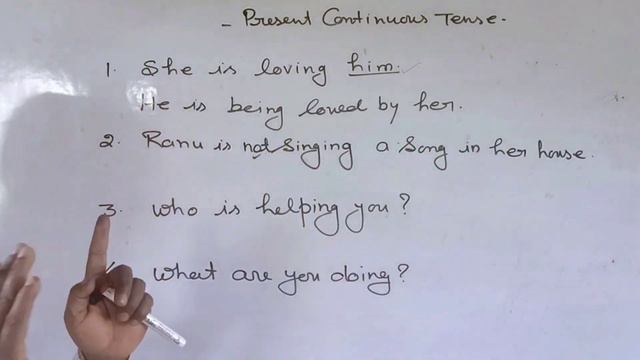 - Present Continuous Tense.
1. She is loving him.
He is being loved by her.
2. Ranu is not singing a song in her house.
3. Who is helping you?
What are you doing?